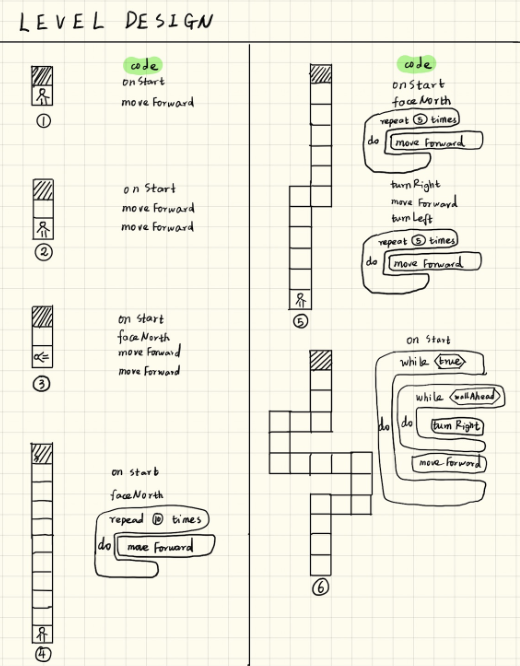 LEVEL DESIGN
code
onStart
move Forward
①
on Start
move Forward
move Forward
②
on Start
faceNorth
move Forward
move Forward
③
on Starb
faceNorth
repead ⑩ times
do
move Forward
④
code
onStart
faceNorth
repeat ⑤ times
do
move Forward
turnRight
move Forward
turnLeft
repeat ⑤ times
do
move Forward
⑤
on Start
while true
while wallAhead
do
do
turn Right
move Forward
⑥